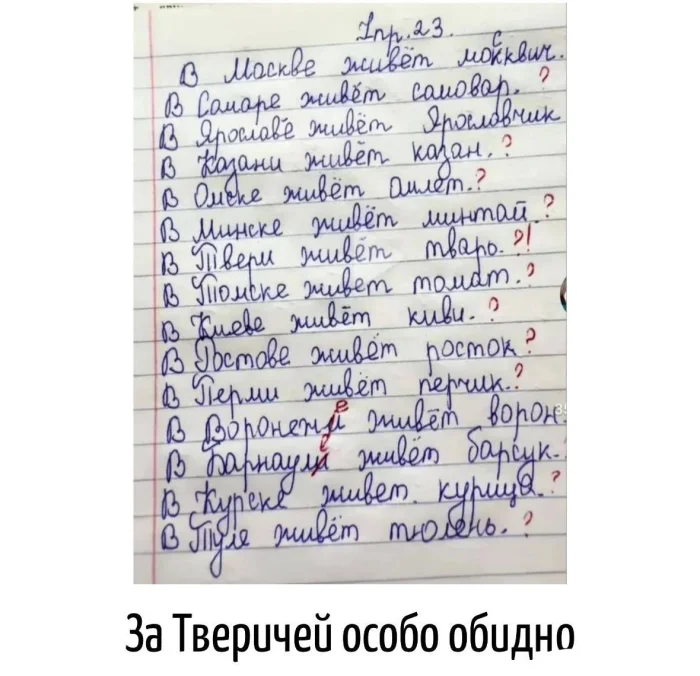 1пр.23.
В Москве живёт москвич.
В Самаре живёт самовар. ?
В Ярославе живёт Ярославчик
В Казани живёт казан. ?
В Омске живёт омлет. ?
В Минске живёт минтай. ?
В Твери живёт тварь. ?!
В Томске живет томат. ?
В Киеве живёт киви. ?
В Ростове живёт росток ?
В Перми живёт перчик. ?
В Воронежие живёт ворон.
В Барнаулие живёт барсук.
В Курске живет. курица. ?
В Туле живёт тюлень. ?
За Тверичей особо обидно